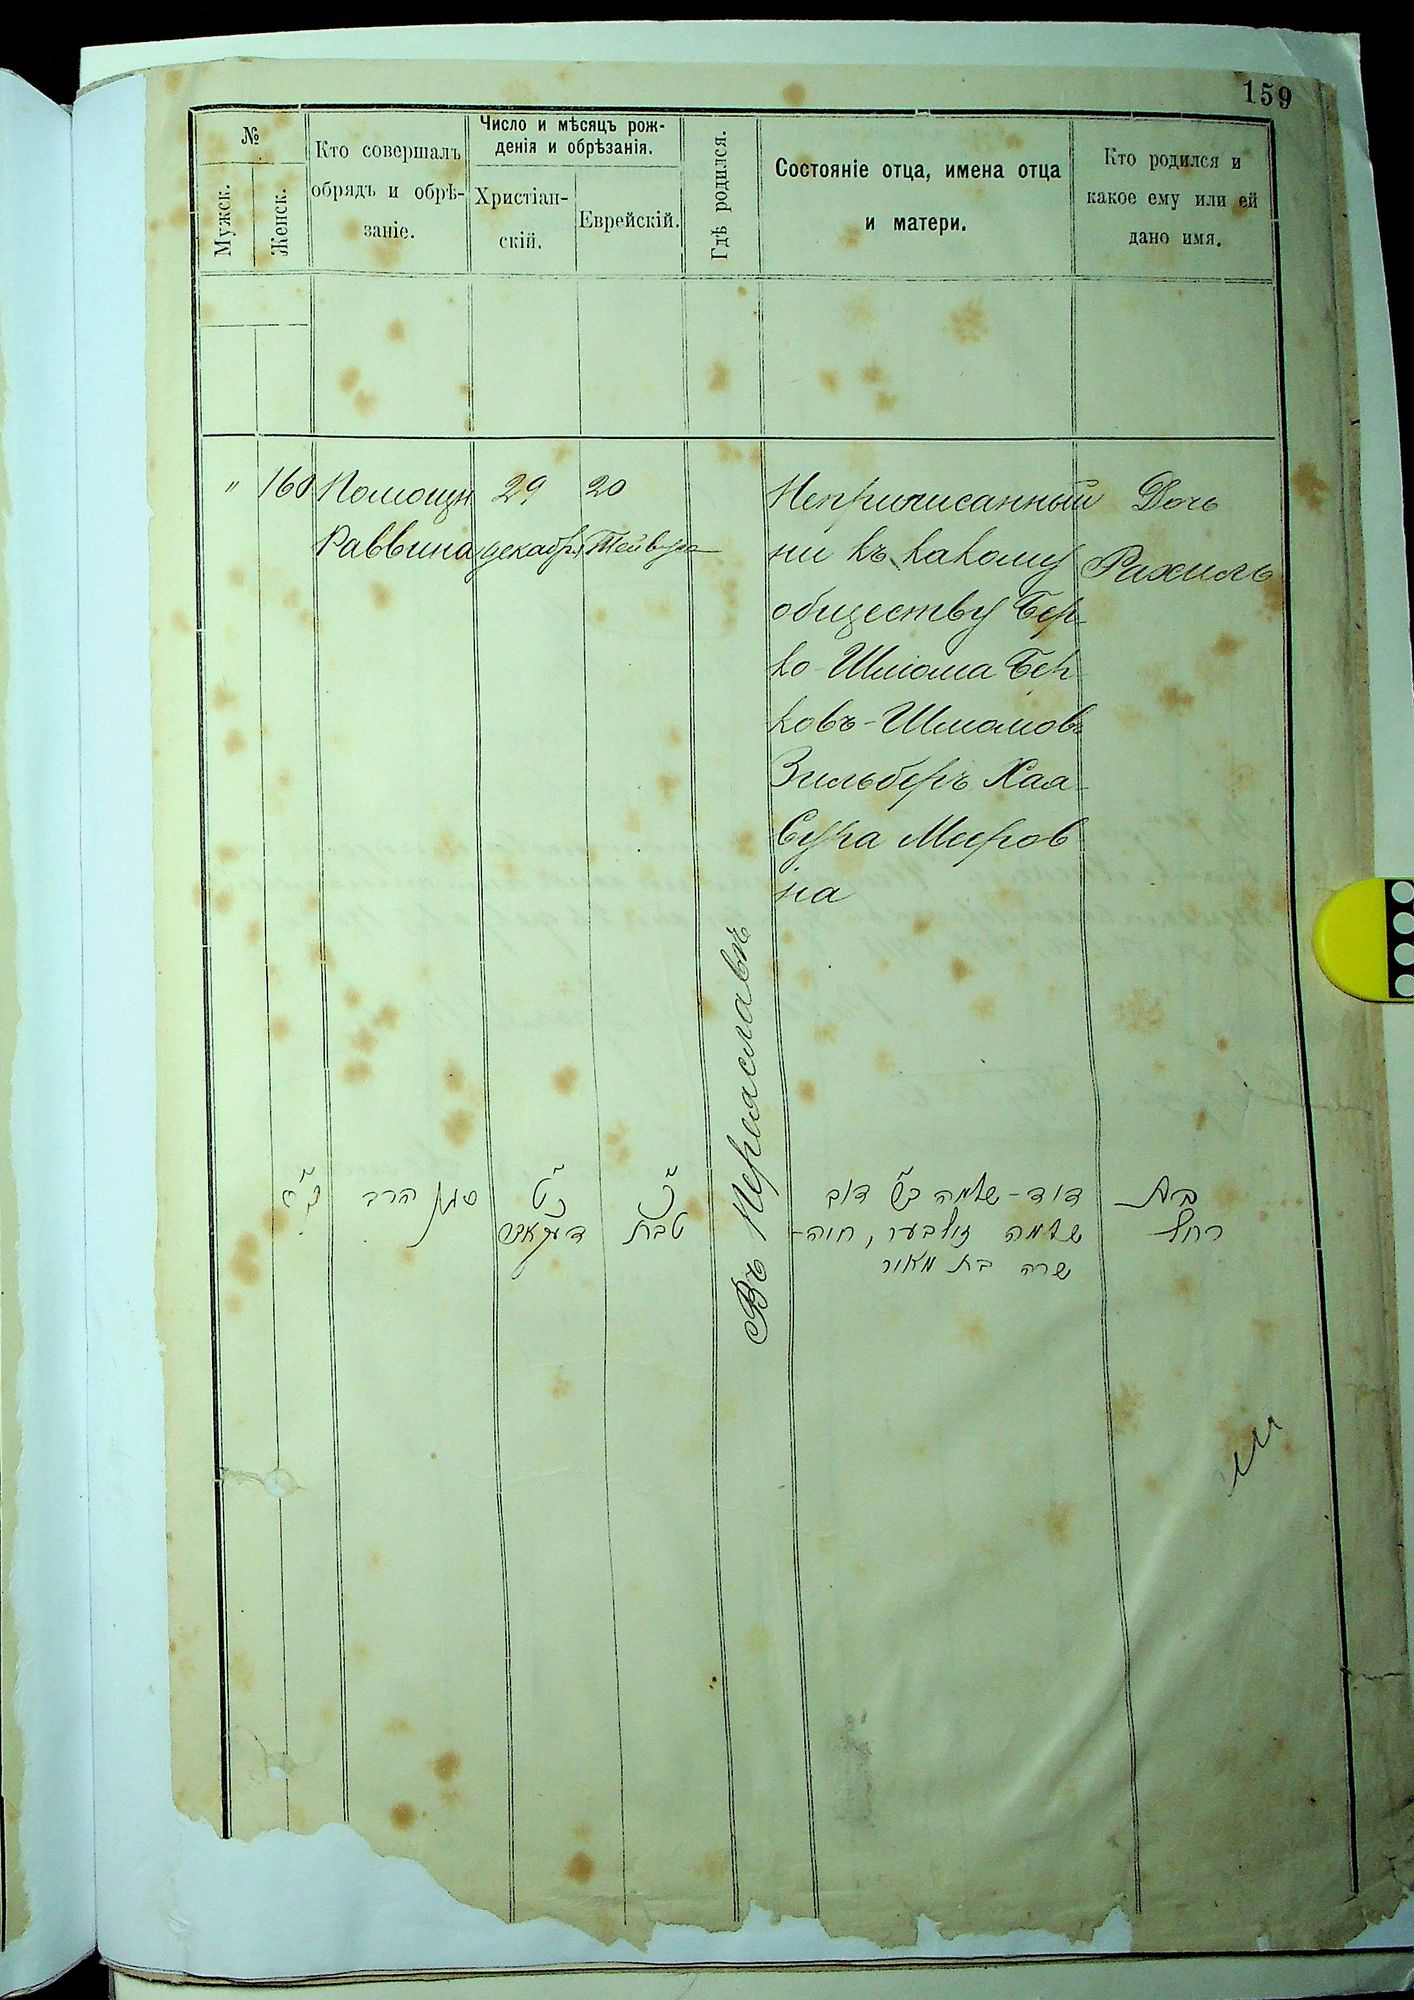 159
№
Мужск.
Женск.
Кто совершалъ
обрядъ и обрѣ-
заніе.
Число и мѣсяцъ рож-
денія и обрѣзанія.
Христіан-
скій.
Еврейскій.
Гдѣ родился.
Состояніе отца, имена отца
и матери.
Кто родился и
какое ему или ей
дано имя.
" 160
Помощн
Раввина
29
декабр.
20
Тейвуса
Въ Переяславѣ
Неприписанный
ни къ какому
обществу Бер-
ко-Шлиома Бер
ковъ-Шлиомовъ
Зильберъ Хая-
Сура Меиров
на
Дочь
Рахиль
ק״ס
סגן הרב
כ״ט
דעקאבר
כ׳
טבת
דוב-שלמה ב״ר דוב
שלמה זילבער, חיה-
שרה בת מאיר
בת
רחל